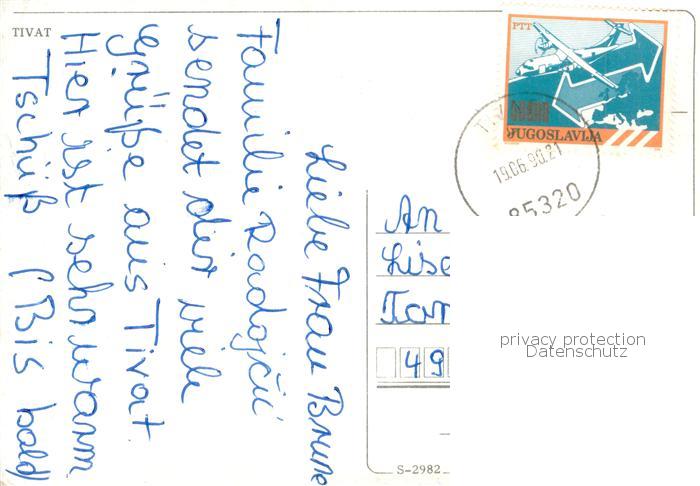 TIVAT
Liebe Frau Brune
Familie Radojčić
sendet dir viele
Grüße aus Tivat.
Hier ist sehr warm
Tschüß (Bis bald)
PTT
JUGOSLAVIJA
19.06.90.21
85320
An
Lise
49
privacy protection
Datenschutz
S-2982